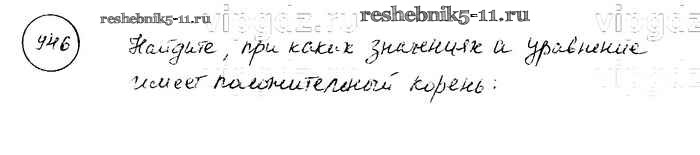 reshebnik5-11.ru
946
Найдите, при каких значениях а уравнение
имеет положительный корень:
reshebnik5-11.ru